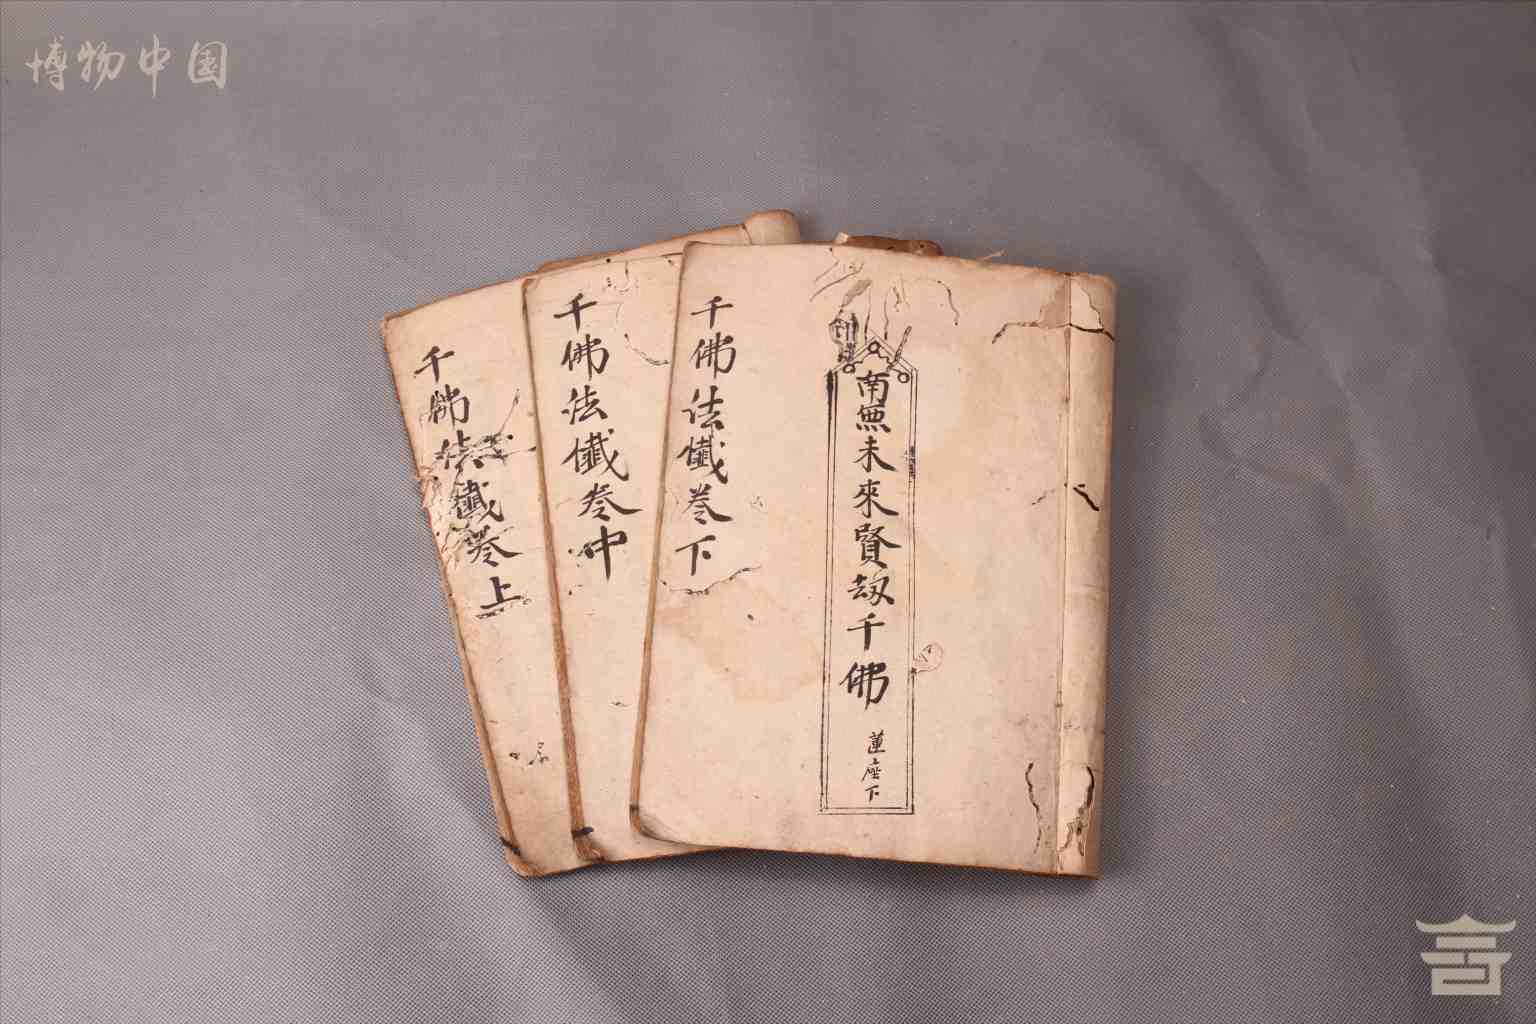 博物中国
千佛法懺卷上
千佛法懺卷中
千佛法懺卷下
南無未來賢劫千佛
蓮座下